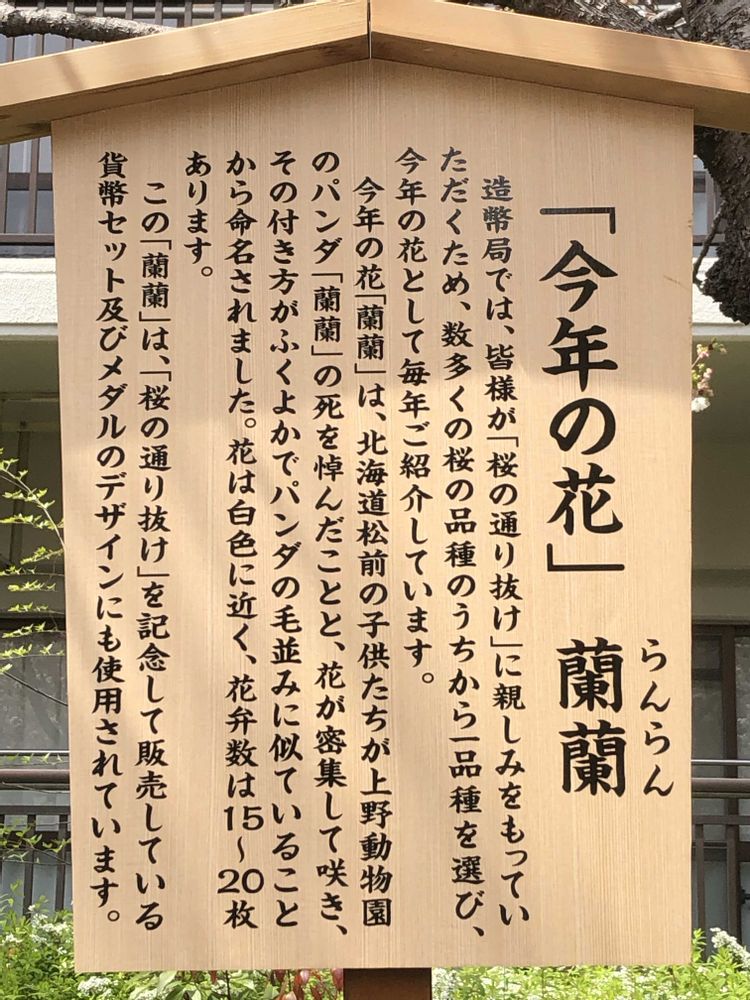 「今年の花」 蘭蘭
らんらん
造幣局では、皆様が「桜の通り抜け」に親しみをもってい
ただくため、数多くの桜の品種のうちから一品種を選び、
今年の花として毎年ご紹介しています。
今年の花「蘭蘭」は、北海道松前の子供たちが上野動物園
のパンダ「蘭蘭」の死を悼んだことと、花が密集して咲き、
その付き方がふくよかでパンダの毛並みに似ていること
から命名されました。花は白色に近く、花弁数は15～20枚
あります。
この「蘭蘭」は、「桜の通り抜け」を記念して販売している
貨幣セット及びメダルのデザインにも使用されています。